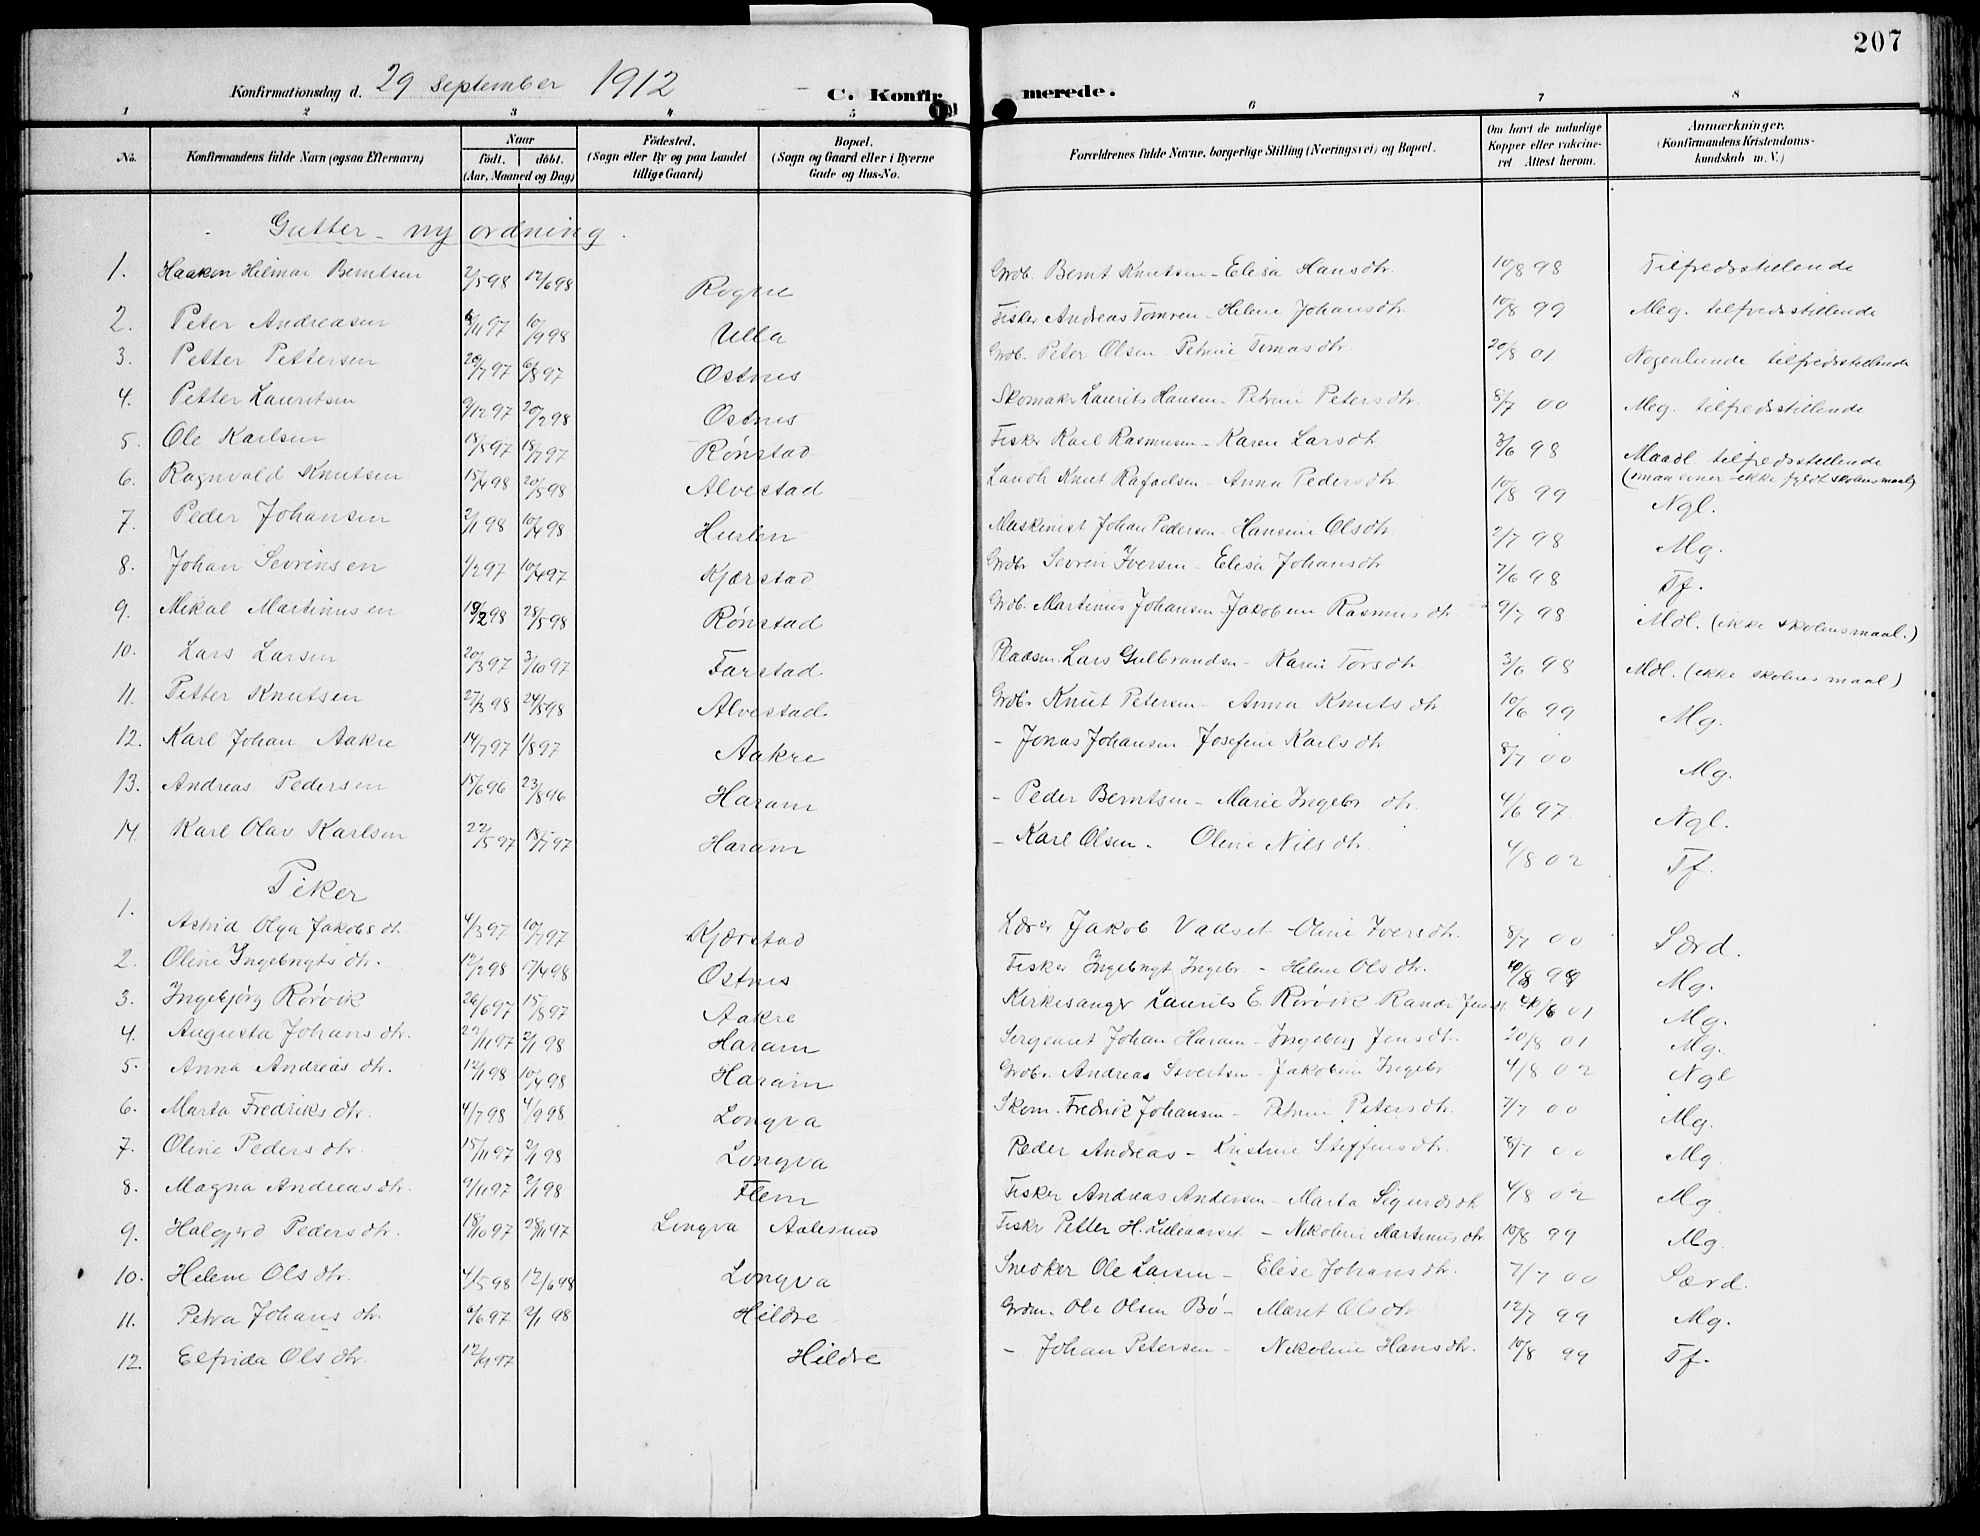 207
Konfirmationsdag d. 29 September 1912 C. Konfirmerede.
1 2 3 4 5 6 7 8
No. Konfirmandens fulde Navn (ogsaa Efternavn) Naar født. døbt. (Aar, Maaned og Dag) Fødested. (Sogn eller By og paa Landet tillige Gaard) Bopæl. (Sogn og Gaard eller i Byerne Gade og Hus-No. Forældrenes fulde Navne, borgerlige Stilling (Næringsvei) og Bopæl. Om havt de naturlige Kopper eller vakcineret Attest herom. Anmærkninger. (Konfirmandens Kristendomskundskab m. V.)
Gutter - ny ordning.
1. Haakon Hilmar Berntsen 2/5 98 12/6 98 Rogne Grdb. Bernt Knutsen - Elisa Hansdtr. 10/8 98 Tilfredsstillende
2. Peter Andreasen 6/11 97 10/9 98 Ulla Fisker Andreas Tomren - Helene Johansdtr. 10/8 99 Meg. tilfredsstillende
3. Petter Pettersen 20/7 97 6/8 97 Østnes Grdb. Peter Olsen - Petrine Tomasdtr. 20/8 01 Nogenlunde tilfredsstillende
4. Petter Lauritsen 9/12 97 20/2 98 Østnes Skomakr Laurits Hansen - Petrine Petersdtr. 8/7 00 Meg. tilfredsstillende
5. Ole Karlsen 18/5 97 18/7 97 Rønstad Fisker Karl Rasmusen - Karen Larsdtr 3/6 98 Maadl tilfredsstillende
6. Ragnvald Knutsen 15/4 98 20/5 98 Alvestad Landh Knut Rafaelsen - Anna Pedersdtr 10/8 99 Ngl.
7. Peder Johansen 2/1 98 10/4 98 Hurlen Maskinist Johan Pedersen - Hansine Olsdtr 2/7 98 Mg.
8. Johan Sevrinsen 1/2 97 10/4 97 Kjærstad Grdbr Sevrin Iversen - Elisa Johansdtr 7/6 98 Tf.
9. Mikal Martinusen 19/2 98 28/5 98 Rønstad Grdb. Martinus Johansen Jakobine Rasmusdtr 9/7 98 Mdl. (ikke skolens maal.)
10. Lars Larsen 20/3 97 3/10 97 Farstad Pladsm. Lars Gulbrandsen - Karen Torsdtr 3/6 98 Mdl. (ikke skolens maal)
11. Petter Knutsen 27/3 98 24/5 98 Alvestad Grdbr Knut Petersen - Anna Knutsdtr 10/6 99 Mg.
12. Karl Johan Aakre 14/7 97 1/8 97 Aakre - Jonas Johansen Josefine Karlsdtr. 8/7 00 Mg.
13. Andreas Pedersen 15/6 96 23/8 96 Haram - Peder Berntsen - Marie Ingebr. dtr. 4/6 97 Ngl.
14. Karl Olav Karlsen 22/5 97 18/7 97 Haram - Karl Olsen - Oline Nilsdtr. 4/8 02 Tf.
Piker
1. Astrid Olga Jakobsdtr. 4/3 97 10/7 97 Kjærstad Lærer Jakob Vadset - Oline Iversdtr. 8/7 00 Særd.
2. Oline Ingebrigtsdtr. 12/2 98 17/4 98 Østnes Fisker Ingebrigt Ingebr. - Helene Olsdtr. 10/8 98 Mg.
3. Ingebjørg Rørvik 26/6 97 15/8 97 Aakre Kirkesanger Laurits E. Rørvik Randi Jensdt. 01 Mg.
4. Augusta Johansdtr. 22/11 97 2/1 98 Haram Sergeant Johan Haram - Ingeborg Jensdtr. 20/8 01 Mg.
5. Anna Andreasdtr. 12/1 98 10/4 98 Haram Grdbr. Andreas Sivertsen - Jakobine Ingebr 4/8 02 Ngl
6. Marta Fredriksdtr. 4/7 98 4/9 98 Longva Skom. Fredrik Johansen - Petrine Petersdtr. 7/7 00 Mg.
7. Oline Pedersdtr. 15/11 97 2/1 98 Longva Peder Andreas - Kristine Steffensdtr. 8/7 00 Mg.
8. Magna Andreasdtr. 9/11 97 2/1 98 Flem Fisker Andreas Andersen - Marta Sigurdsdtr 4/8 02 Mg.
9. Halgjerd Pedersdtr. 18/10 97 28/11 97 Longva Aalesund Fiskr Petter H. Lilleaarset - Nikoline Martinusdtr 10/8 99 Mg.
10. Helene Olsdtr. 4/5 98 12/6 98 Longva Snedker Ole Larsen - Elise Johansdtr. 7/7 00 Særd.
11. Petra Johansdtr. 6/6 97 2/1 98 Hildre Grdm. Ole Olsen Bø - Maret Olsdtr. 12/7 99 Mg.
12. Elfrida Olsdtr. 12/9 97 Hildre - Johan Petersen - Nikoline Hansdtr. 10/8 99 Tf.